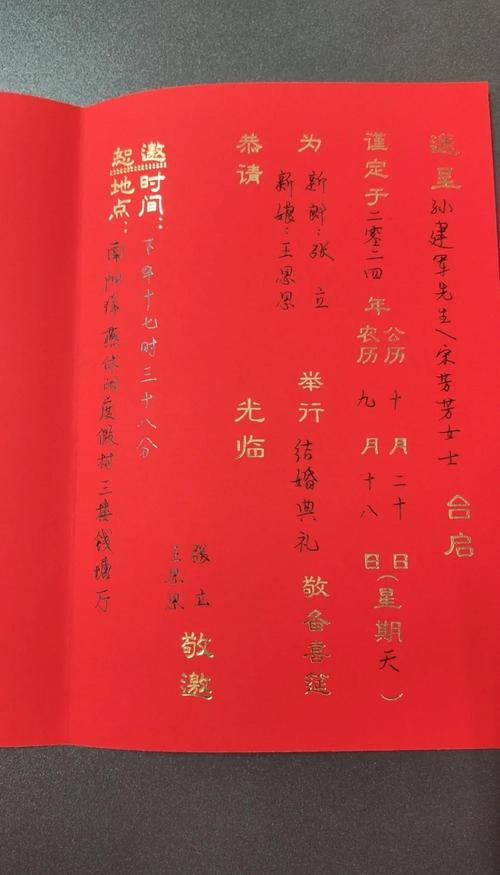 送呈 孙建军先生\宋芳芳女士 台启
谨定于二零二四年
公历十月二十日
农历九月十八日
(星期天)
为 新郎:张立
新娘:王思思
举行 结婚典礼 敬备喜筵
恭请 光临
张立
王思思
敬邀
邀时间:下午十七时三十八分
恕地点:南阳 燕休闲度假村三楼钱塘厅